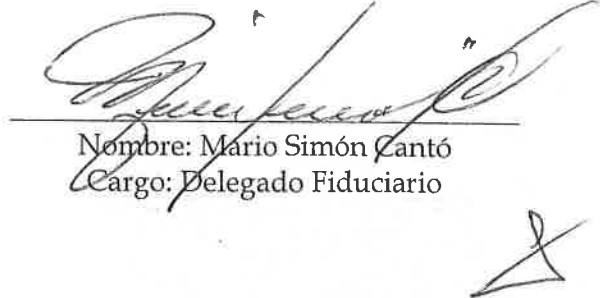 Nombre: Mario Simón Cantó
Cargo: Delegado Fiduciario